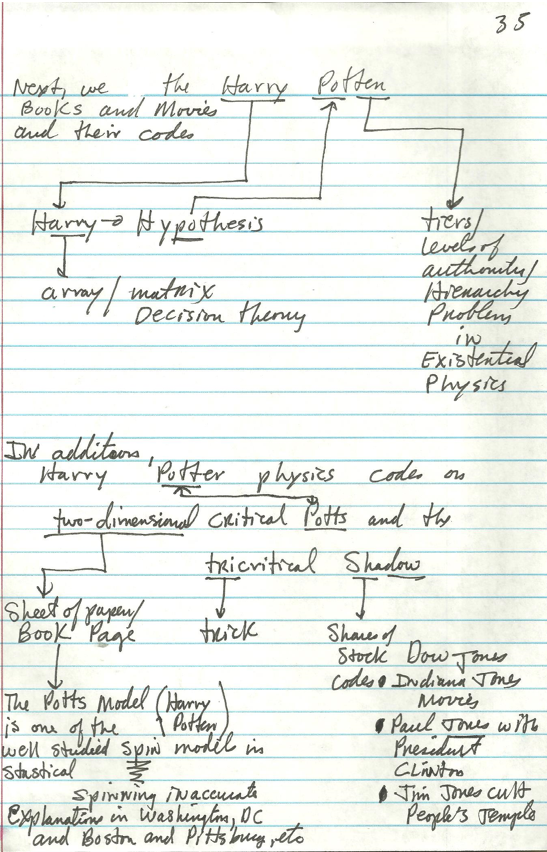 35
Next, we the Harry Potter
Books and Movies
and their codes
Harry → Hypothesis
array/matrix
Decision theory
tiers/
levels of
authority/
Hierarchy
Problem
in
Existential
Physics
IN additions,
Harry Potter physics codes on
two-dimensional critical Potts and the
tricritical Shadow
Sheet of paper/
Book Page
trick
Shares of
Stock Dow Jones
codes • Indiana Jones
Movies
• Paul Jones with
President
Clinton
• Jim Jones cult
People's Temple
The Potts Model (Harry
Potter)
is one of the
well studied spin model in
stastical
spinning inaccurate
Explanations in Washington, DC
and Boston and Pittsburg, etc